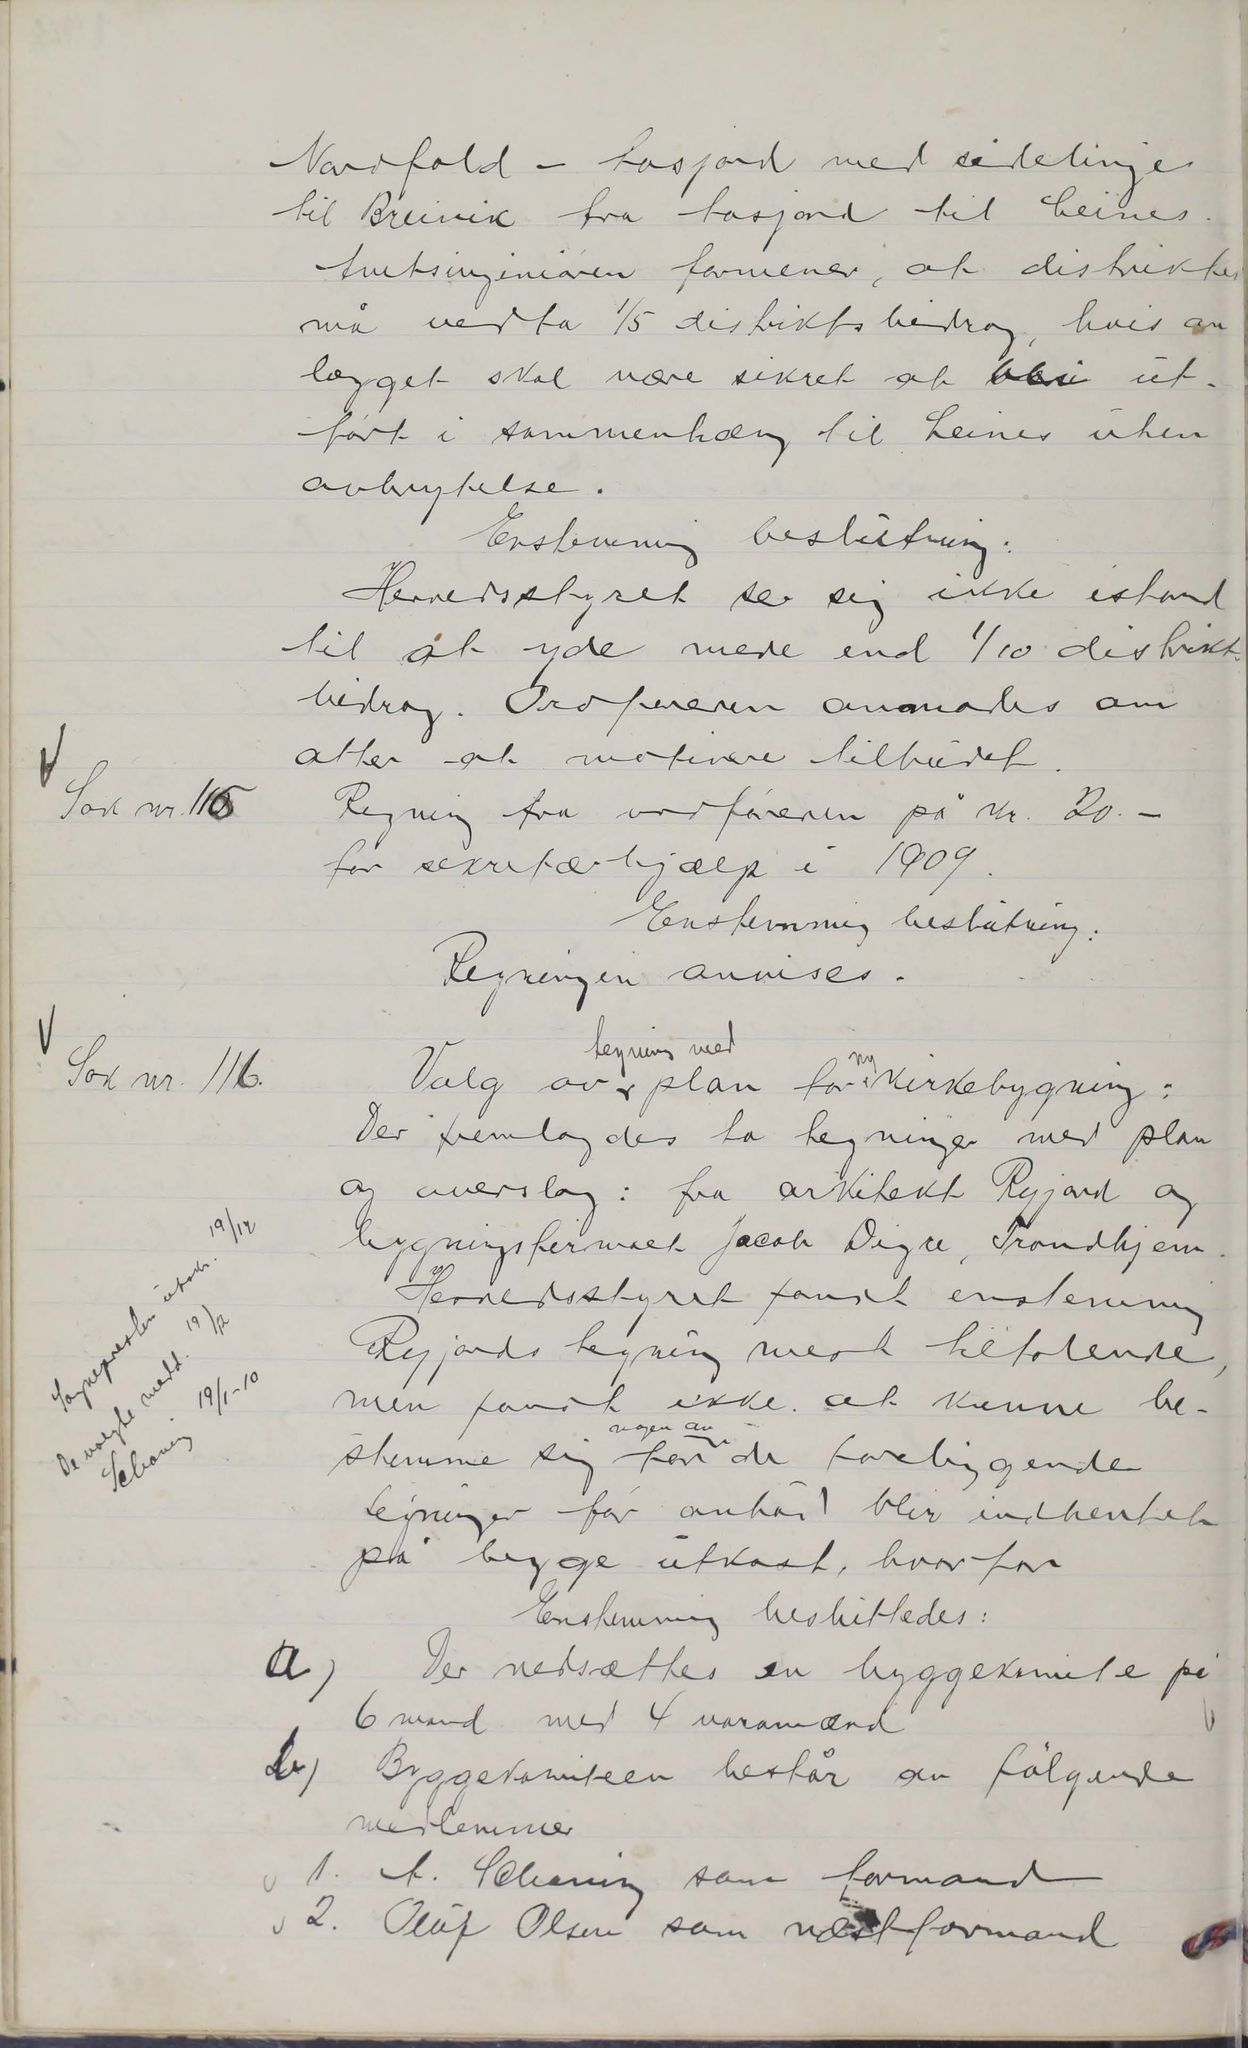 Nordfold - Løsjord med sidelinje
til Breivik fra Løsjord til Leines.
Amtsingeniøren formener, at distriktet
må vedta 1/5 distriktsbidrag, hvis an
lægget skal være sikret at bli ut-
ført i sammenhæng til Leines uten
avbrytelse.
Enstemmig beslutning:
Herredsstyret se sig ikke istand
til at yde mere end 1/10 distrikts
bidrag. Ordføreren anmodes om
atter at motivere tilbudet.
Sak nr. 115
Regning fra ordføreren på kr. 20.-
for sekretærhjælp i 1909.
Enstemmig beslutning:
Regningen anvises.
Sak nr. 116.
tegning med
ny
Valg av plan for kirkebygning:
Der fremlagdes to tegninger med plan
og overslag: fra arkitekt Ryjord og
bygningsfirmaet Jacob Digre, Trondhjem.
Herredsstyret fandt enstemmig
Ryjords tegning mest tiltalende,
men fandt ikke at kunne be-
nogen av
stemme sig for de foreliggende
tegninger før anbud blir indhentet
på begge utkast, hvorfor
Sognepresten utskr. 19/12
De valgte medd. 19/12
Schøning 19/1-10
Enstemmig besluttedes:
a) Der nedsættes en byggekomite på
6 mand med 4 varamænd
b) Byggekomiteen består av følgende
medlemmer
1. A. Schøning som formand
2. Oluf Olsen som næstformand